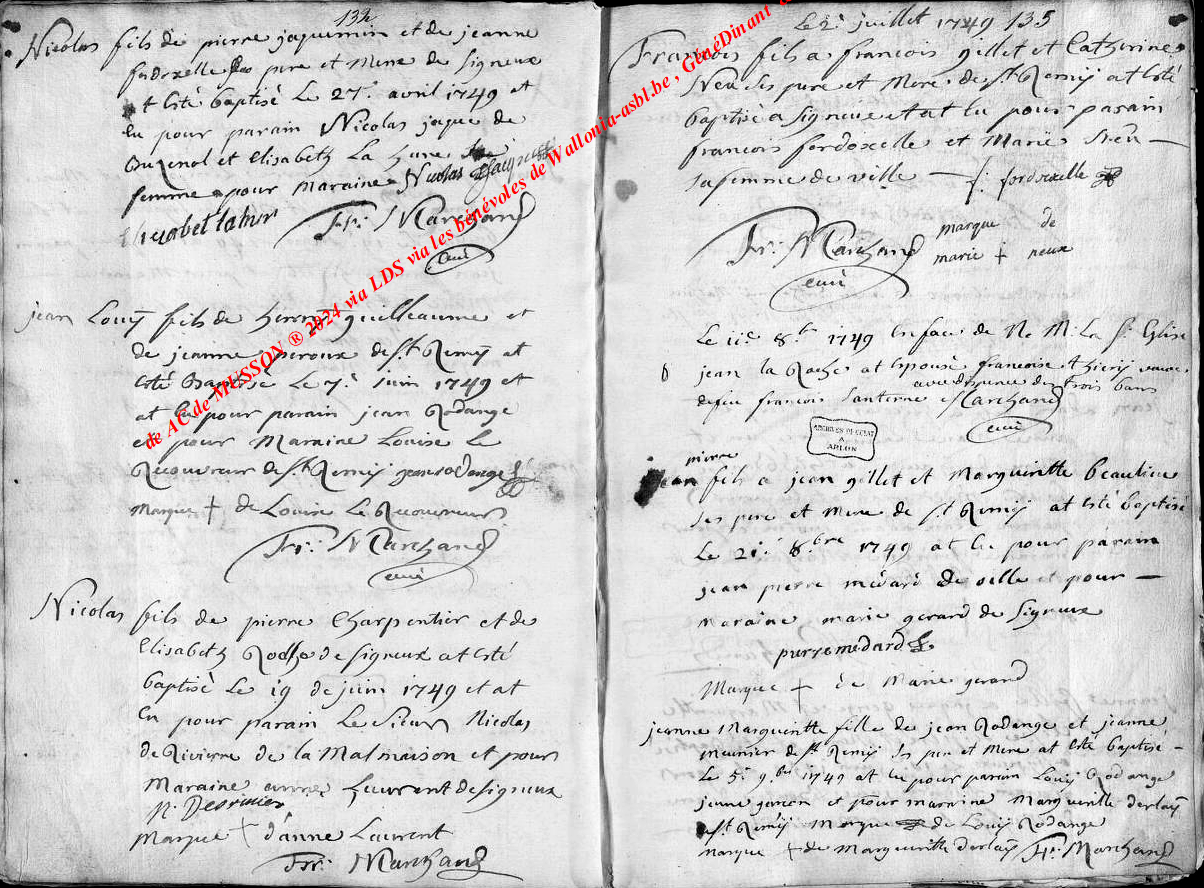 132
Nicolas fils de pierre jaquemin et de jeanne
fordoxelle ses pere et Mere de Signeux
at esté baptisé Le 27e. avril 1749 et
Eu pour parain Nicolas jaque de
Buzenol et Elisabeth La hure sa
femme pour Maraine Nicolas Jacques
isabel lahur
Fr: Marchand
curé
jean Louÿ fils de henry guilleaume et
de jeanne peroux de St. Remÿ at
esté Baptisé Le 7e. Juin 1749 et
at Eu pour parain jean Rodange
et pour Maraine Louise Le
Recouvreur de St. Remÿ jean rodange
Marque + de Louise Le Recouvreur
Fr: Marchand
curé
Nicolas fils de pierre Charpentier et de
Elisabeth de Signeux at esté
baptisé Le 19 de juin 1749 et at
Eu pour parain Le Sieur Nicolas
de Rivierre de la Malmaison et pour
Maraine anne Laurent de Signeux
N:
Marque + d'anne Laurent
Fr: Marchand
Le 2e juillet 1749 135
Francois fils a francois gillet et Catherine
Neu ses pere et Mere de St. Remÿ at esté
baptisé a Signeux et at Eu pour parain
francois fordoxelle et Marie Neu
sa femme de ville f: fordoxelle
Fr: Marchand
curé
marque de
marie + neux
Le 8br 1749 En face de N. M. La Ste Eglise
jean la Roche at Epousé francoise thiery veuve
avec dispence des trois bans
defeu francois Santerne Marchand
curé
ARCHIVES DE L'ETAT
A
ARLON
pierre
jean fils a jean gillet et Marguiritte beaulieu
ses pere et Mere de St. Remÿ at esté baptisé
Le 21e. 8bre 1749 at Eu pour parain
jean pierre médard de ville et pour
Maraine marie gerard de Signeux
pierre medard
Marque + de Marie gerard
jeanne Marguiritte fille de jean Rodange et jeanne
meunier de St. Remÿ ses pere et Mere at esté baptisé
Le 5e. 9bre 1749 at Eu pour parain Louÿ Rodange
jeune garcon et pour maraine Marguiritte
de St. Remÿ Marque de Louÿ Rodange
Marque + de Marguiritte Fr: Marchand
de AC de MUSSON ® 2024 via LDS via les bénévoles de Wallonia-asbl.be , GénéDinant